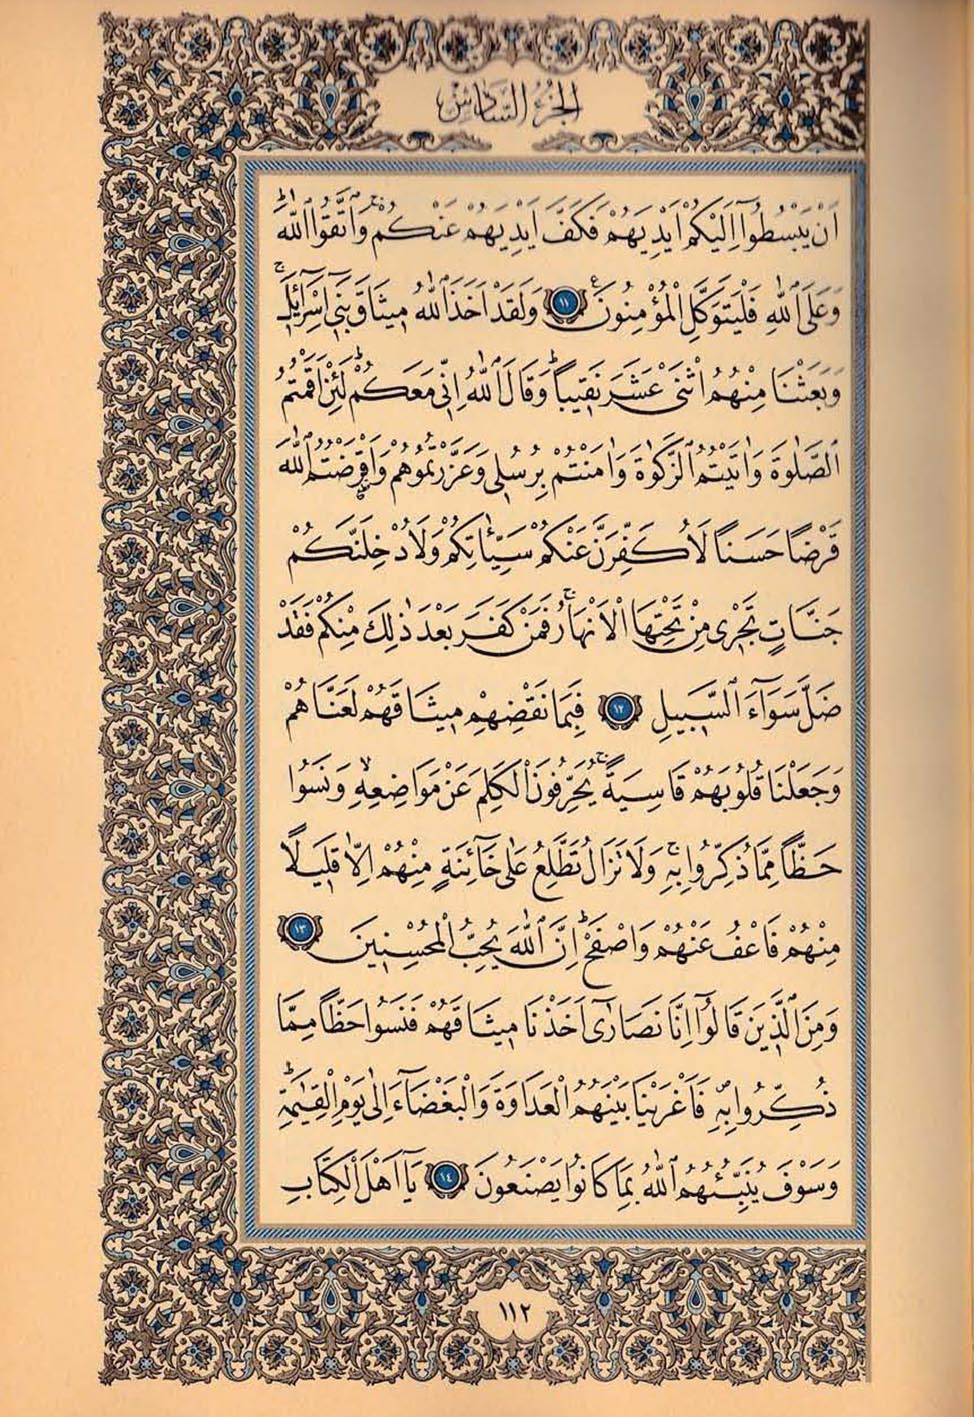 الجزء السادس
اَنْ يَبْسُطُٓوا اِلَيْكُمْ اَيْدِيَهُمْ فَكَفَّ اَيْدِيَهُمْ عَنْكُمْۚ وَاتَّقُوا اللّٰهَۜ
وَعَلَى اللّٰهِ فَلْيَتَوَكَّلِ الْمُؤْمِنُونَ۟ ﴿١١﴾ وَلَقَدْ اَخَذَ اللّٰهُ م۪يثَاقَ بَن۪ٓي اِسْرَٓائ۪لَۚ
وَبَعَثْنَا مِنْهُمُ اثْنَيْ عَشَرَ نَق۪يباًۜ وَقَالَ اللّٰهُ اِنّ۪ي مَعَكُمْۜ لَئِنْ اَقَمْتُمُ
الصَّلٰوةَ وَاٰتَيْتُمُ الزَّكٰوةَ وَاٰمَنْتُمْ بِرُسُل۪ي وَعَزَّرْتُمُوهُمْ وَاَقْرَضْتُمُ اللّٰهَ
قَرْضاً حَسَناً لَاُكَفِّرَنَّ عَنْكُمْ سَيِّـَٔاتِكُمْ وَلَاُدْخِلَنَّكُمْ
جَنَّاتٍ تَجْر۪ي مِنْ تَحْتِهَا الْاَنْهَارُۚ فَمَنْ كَفَرَ بَعْدَ ذٰلِكَ مِنْكُمْ فَقَدْ
ضَلَّ سَوَٓاءَ السَّب۪يلِ ﴿١٢﴾ فَبِمَا نَقْضِهِمْ م۪يثَاقَهُمْ لَعَنَّاهُمْ
وَجَعَلْنَا قُلُوبَهُمْ قَاسِيَةًۚ يُحَرِّفُونَ الْكَلِمَ عَنْ مَوَاضِعِه۪ۙ وَنَسُوا
حَظاًّ مِمَّا ذُكِّرُوا بِه۪ۚ وَلَا تَزَالُ تَطَّلِعُ عَلٰى خَٓائِنَةٍ مِنْهُمْ اِلَّا قَل۪يلاً
مِنْهُمْ فَاعْفُ عَنْهُمْ وَاصْفَحْۜ اِنَّ اللّٰهَ يُحِبُّ الْمُحْسِن۪ينَ ﴿١٣﴾
وَمِنَ الَّذ۪ينَ قَالُٓوا اِنَّا نَصَارٰٓى اَخَذْنَا م۪يثَاقَهُمْ فَنَسُوا حَظاًّ مِمَّا
ذُكِّرُوا بِه۪ۖ فَاَغْرَيْنَا بَيْنَهُمُ الْعَدَاوَةَ وَالْبَغْضَٓاءَ اِلٰى يَوْمِ الْقِيٰمَةِۜ
وَسَوْفَ يُنَبِّئُهُمُ اللّٰهُ بِمَا كَانُوا يَصْنَعُونَ ﴿١٤﴾ يَٓا اَهْلَ الْكِتَابِ
١١٢